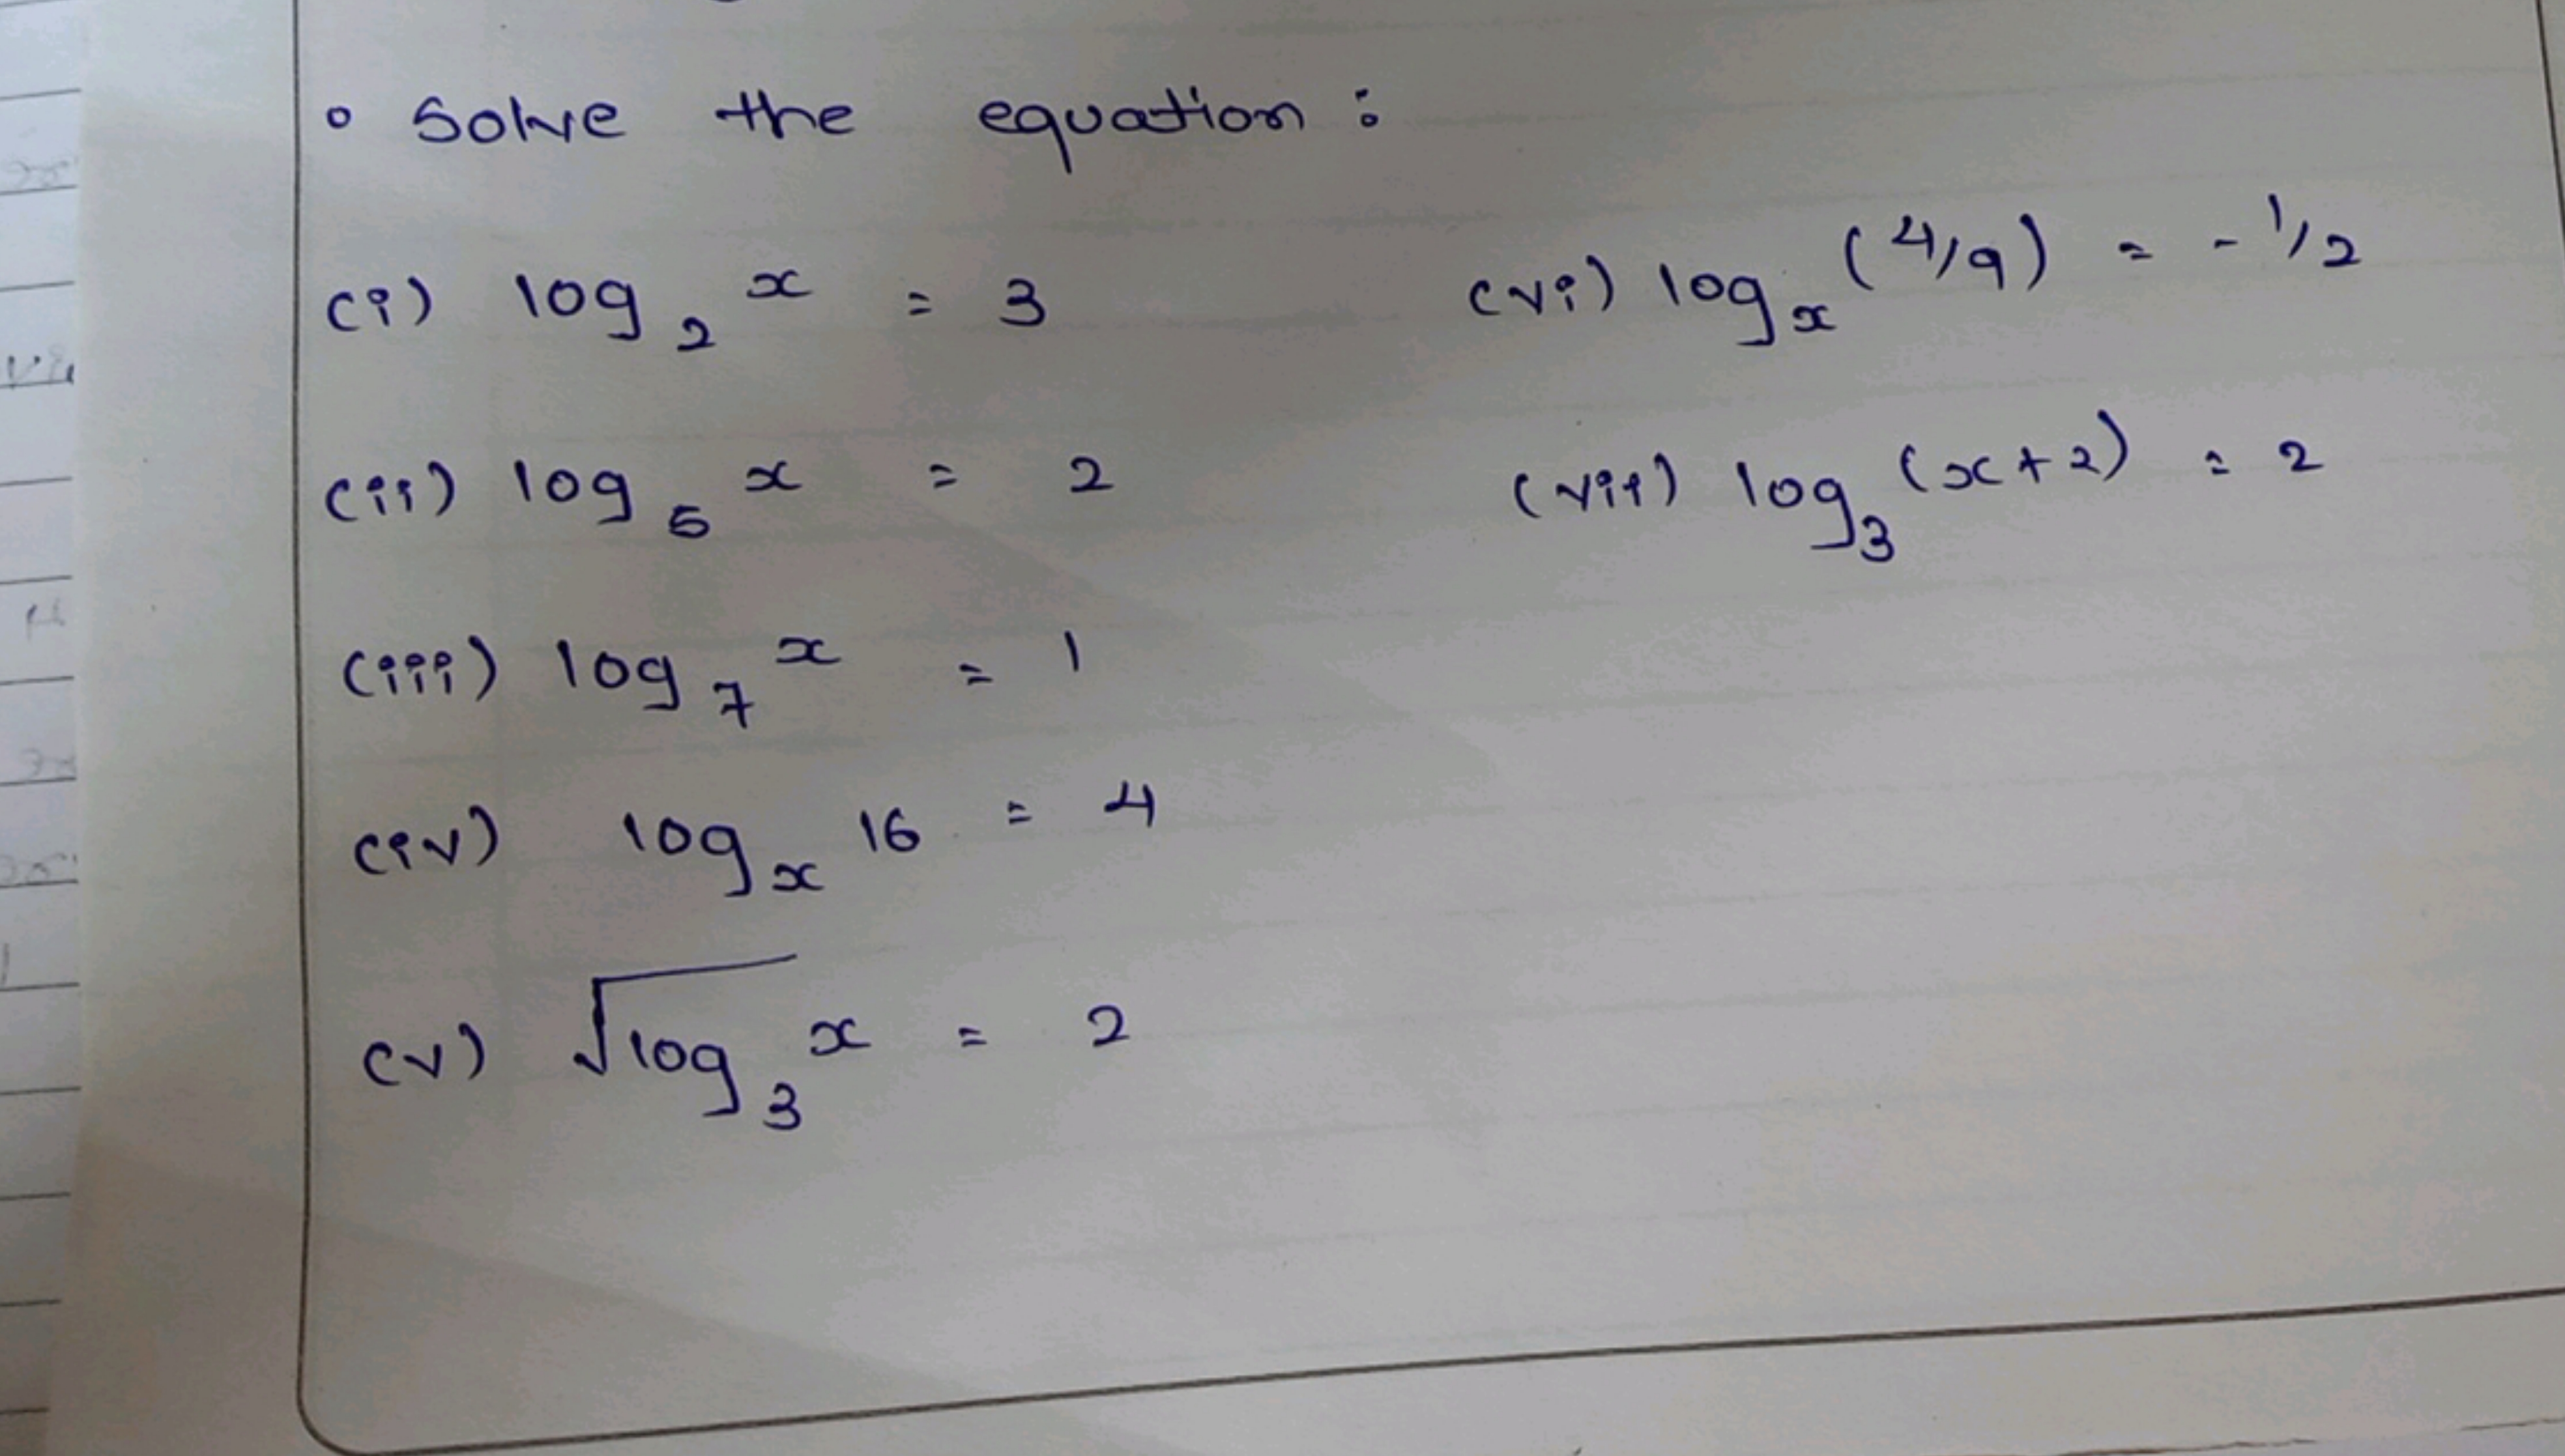 • Solve the equation :
(i) log₂ x = 3
(ii) log₅ x = 2
(iii) log₇ x = 1
(iv) logₓ 16 = 4
(v) √log₃ x = 2
(vi) logₓ (4/9) = - 1/2
(vii) log₃ (x+2) = 2